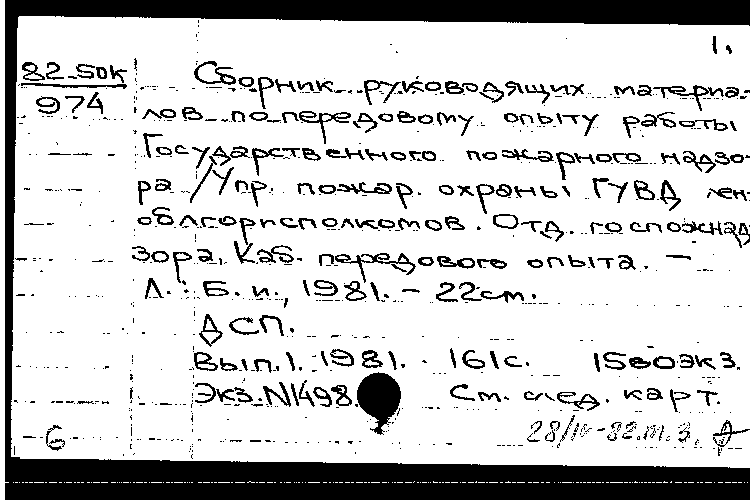 1.
82-5ок
974
Сборник руководящих материа-
лов по передовому опыту работы
Государственного пожарного надзо-
ра / Упр. пожар. охраны ГУВД лен-
облгорисполкомов. Отд. госпожнад
зора, Каб. передового опыта. –
Л.: Б. и., 1981. – 22см.
ДСП.
Вып. 1. 1981. · 161с. 1500экз.
Экз. N1498. См. след. карт.
6 28/IV-82.т.3.